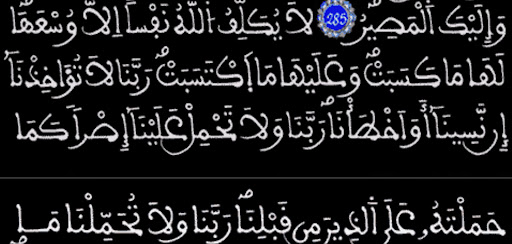 وَإِلَيْكَ اَ۬لْمَصِيرُۖ 285 لَا يُكَلِّفُ اُ۬للَّهُ نَفْساً اِلَّا وُسْعَهَاۖ
لَهَا مَا كَسَبَتْۖ وَعَلَيْهَا مَا اَ۪كْتَسَبَتْۖ رَبَّنَا لَا تُؤَاخِذْنَآ
إِن نَّسِينَآ أَوَ اَخْطَأْنَاۖ رَبَّنَا وَلَا تَحْمِلْ عَلَيْنَآ إِصْراً كَمَا
حَمَلْتَهُۥ عَلَى اَ۬لذِينَ مِن قَبْلِنَاۖ رَبَّنَا وَلَا تُحَمِّلْنَا مَا